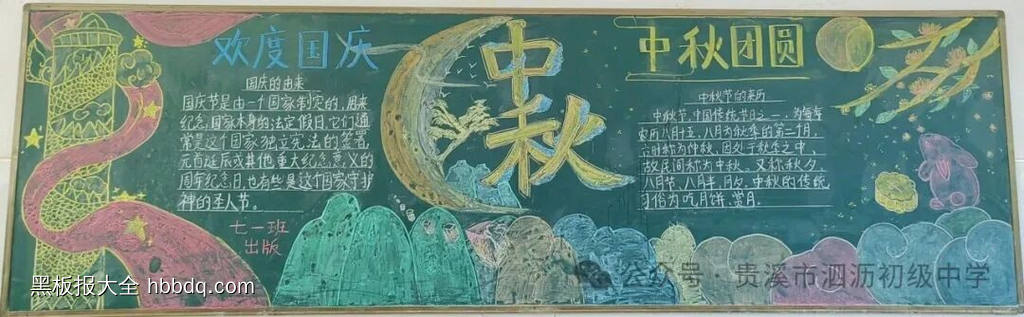 欢度国庆
国庆的由来
国庆节是由一个国家制定的,用来
纪念国家本身的法定假日,它们通
常是这个国家独立宪法的签署
元首诞辰或其他重大纪念意义的
周年纪念日,也有些是这个国家守护
神的圣人节。
七一班
出版
中秋
中秋团圆
中秋节的来历
中秋节,中国传统节日之一,为每年
农历八月十五,八月为秋季的第二个月,
古时称为仲秋,因处于秋季之中,
故民间称为中秋,又称秋夕,
八月节,八月半,月夕,中秋的传统
习俗为吃月饼,赏月.
公众号·贵溪市泗沥初级中学
黑板报大全 hbbdq.com